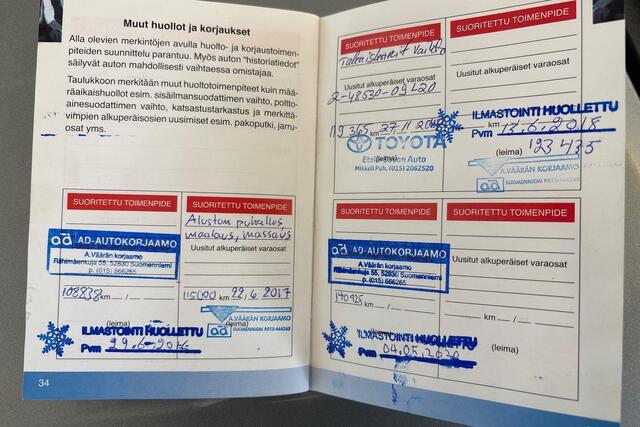 Muut huollot ja korjaukset
Alla olevien merkintöjen avulla huolto- ja korjaustoimen-
piteiden suunnittelu parantuu. Myös auton "historiatiedot"
säilyvät auton mahdollisesti vaihtaessa omistajaa.
Taulukkoon merkitään muut huoltotoimenpiteet kuin mää-
räaikaishuollot esim. sisäilmansuodattimen vaihto, poltto-
ainesuodattimen vaihto, katsastustarkastus ja merkittä-
vimpien alkuperäisosien uusimiset esim. pakoputki, jarru-
osat yms.
SUORITETTU TOIMENPIDE
AD-AUTOKORJAAMO
A.Väärän korjaamo
Riihimäenkuja 55, 52830 Suomenniemi
p. (015) 666265
108838 km
(leima)
ILMASTOINTI HUOLLETTU
Pvm 29.6-2016
SUORITETTU TOIMENPIDE
Alustan puhallus
maalaus, massaus
Uusitut alkuperäiset varaosat
115000 km 22.6 2017
(leima)
A.VÄÄRÄN KORJAAMO
SUOMENNIEMI
34
SUORITETTU TOIMENPIDE
Uusitut alkuperäiset varaosat
2-48530-09L20
119365 km 27.11
TOYOTA
Etelä-Savon Auto
Mikkeli Puh. (015) 2062520
SUORITETTU TOIMENPIDE
Uusitut alkuperäiset varaosat
ILMASTOINTI HUOLLETTU
km
Pvm 13.6.2018
(leima) 123435
A.VÄÄRÄN KORJAAMO
SUOMENNIEMI
SUORITETTU TOIMENPIDE
AD-AUTOKORJAAMO
A.Väärän korjaamo
Riihimäenkuja 55, 52830 Suomenniemi
p. (015) 666265
140925 km
(leima)
ILMASTOINTI HUOLLETTU
Pvm 04.05.2020
SUORITETTU TOIMENPIDE
Uusitut alkuperäiset varaosat
km
(leima)